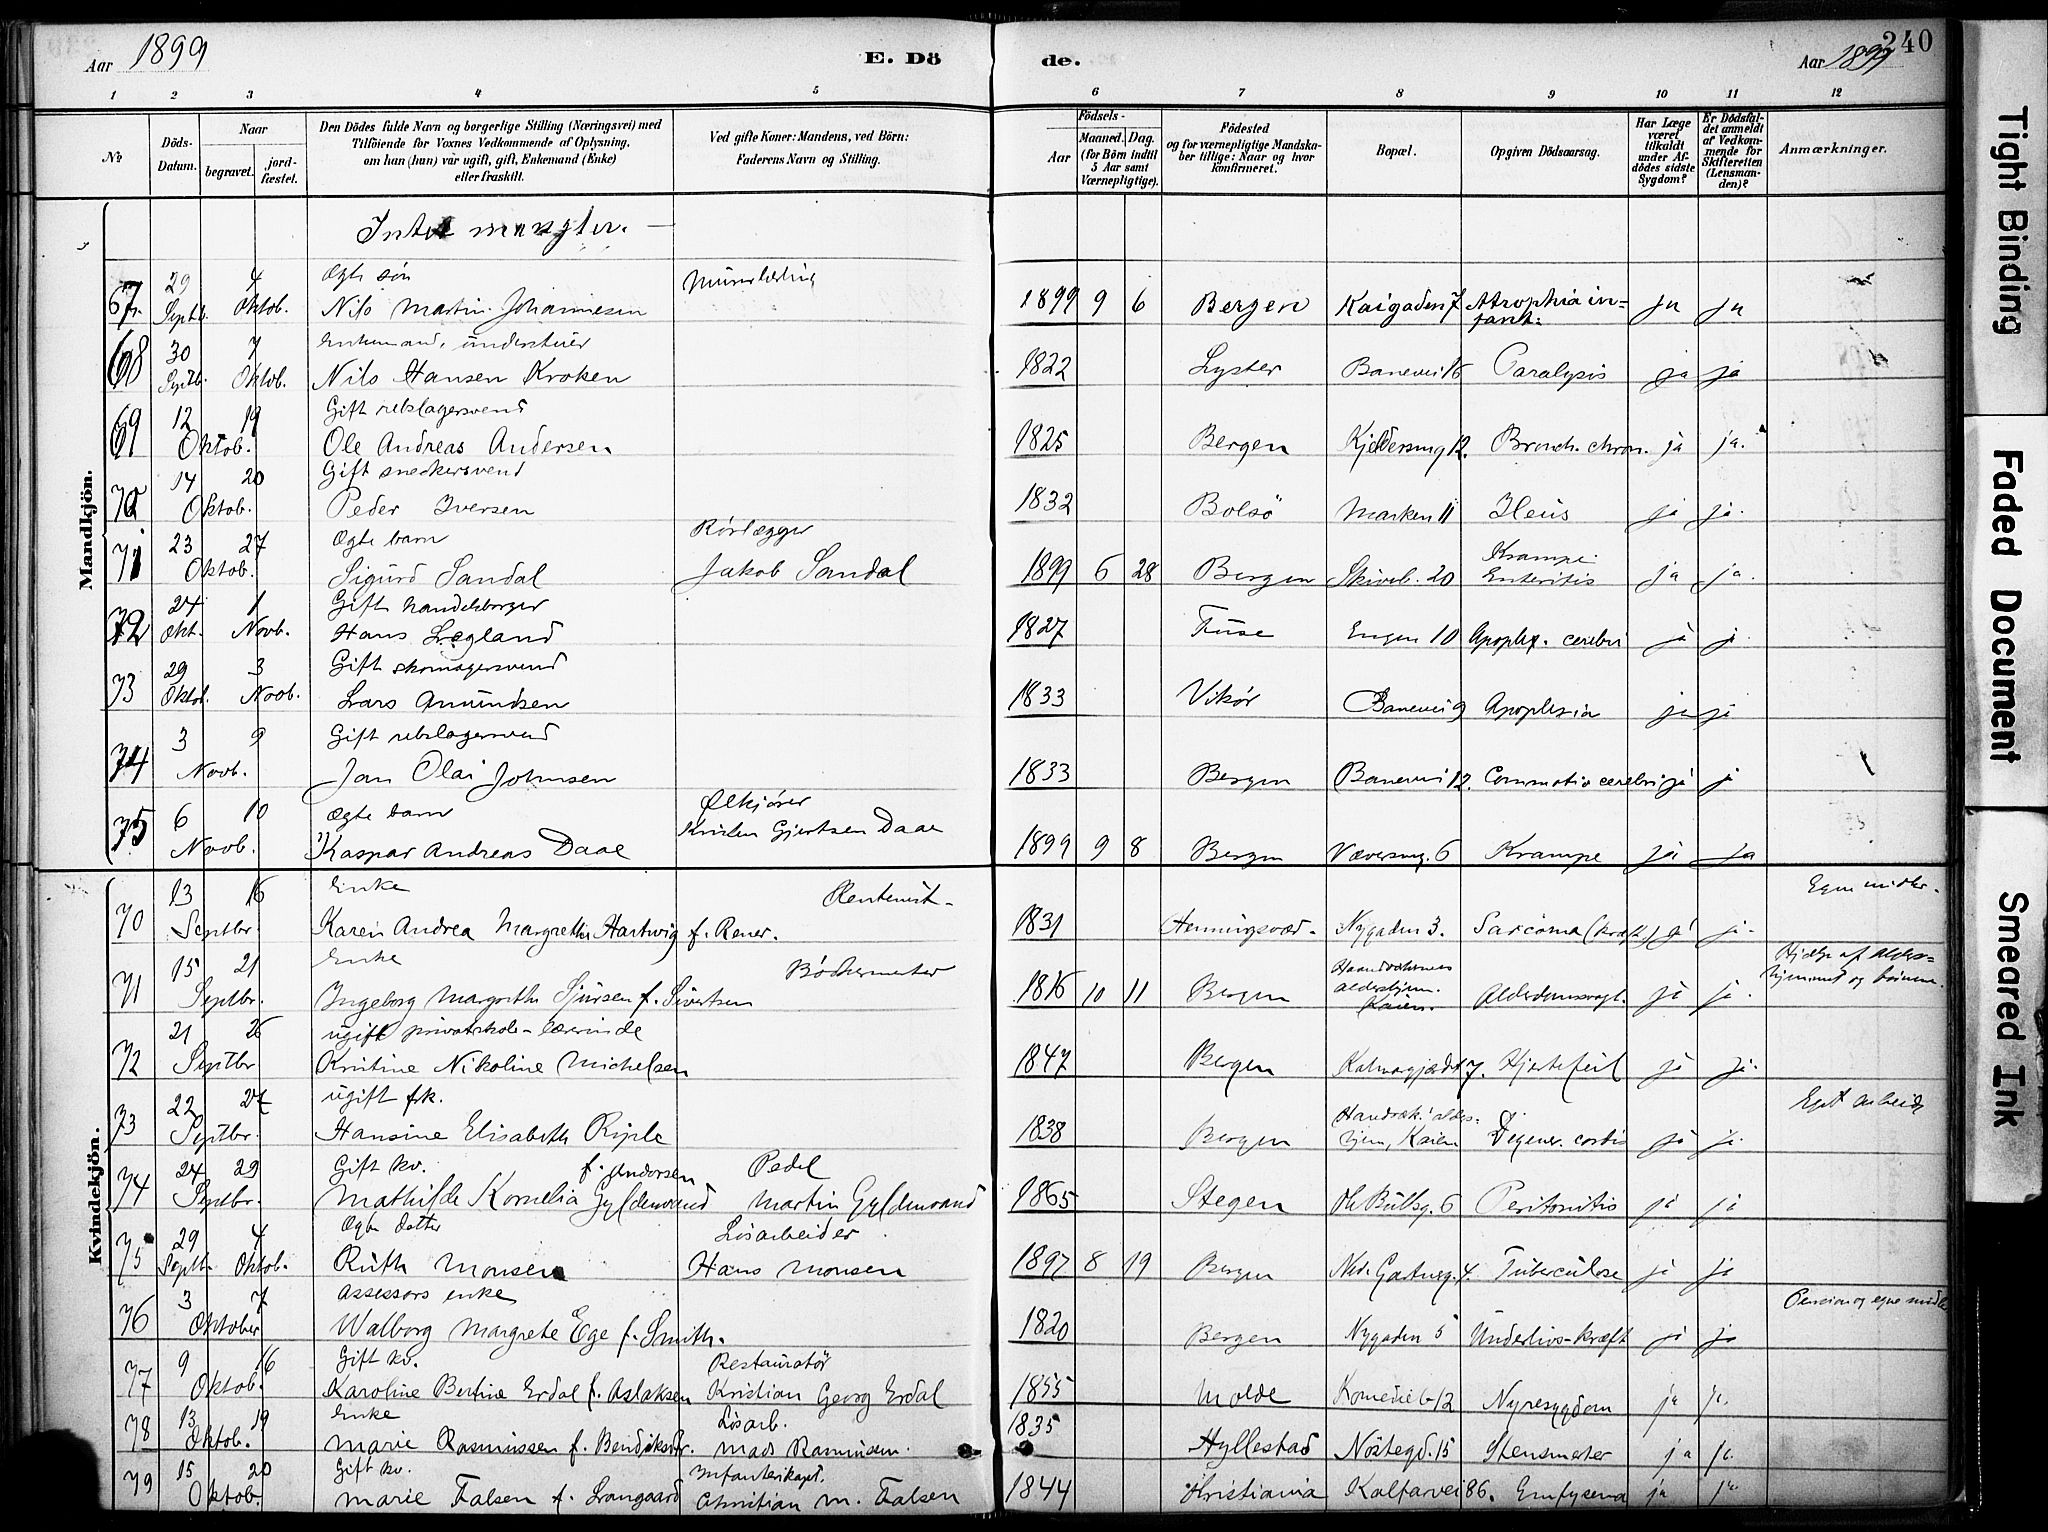 Aar 1899 E. Dö de. Aar 1899 240
1 2 3 4 5 6 7 8 9 10 11 12
No
Döds-Datum.
Naar
begravet. jord-fæstet.
Den Dödes fulde Navn og borgerlige Stilling (Næringsvei) med
Tilföiende for Voxnes Vedkommende af Oplysning,
om han (hun) var ugift, gift, Enkemand (Enke)
eller fraskilt.
Ved gifte Koner: Mandens, ved Börn:
Faderens Navn og Stilling.
Födsels-
Aar Maaned. Dag.
(for Börn indtil
5 Aar samt
Værnepligtige).
Födested
og for værnepligtige Mandska-
ber tillige: Naar og hvor
konfirmeret.
Bopæl.
Opgiven Dödsaarsag.
Har Læge
været
tilkaldt
under Af-
dödes sidste
Sygdom?
Er Dödsfal-
det anmeldt
af Vedkom-
mende for
Skifteretten
(Lensman-
den)?
Anmærkninger.
Mandkjön.
Intet mangler. —
29 4 Ægte søn
67 Septb. Oktob. Nils Martin Johannesen 1899 9 6 Bergen Kaigaden 7 Atrophia in-
fant. ja ja
30 7 Enkemand, understüer
68 Septb. Oktob. Nils Hansen Kroken 1822 Lyster Banevei 16 Paralysis ja ja
12 19 Gift rebslagersvend
69 Oktob. Ole Andreas Andersen 1825 Bergen 12. Bronch. chron. ja ja.
14 20 Gift snedkersvend
70 Oktob. Peder Iversen 1832 Bolsö Marken 11 Ileus ja ja.
23 27 Ægte barn Rörlægger
71 Oktob. Sigurd Sandal Jakob Sandal 1899 6 28 Bergen Skiveb. 20 Krampe
Enteritis ja ja.
24 1 Gift handelsborger
72 Okt. Novb. Hans Lægland 1827 Fuse Engen 10 Apoplex. cerebri ja j.
29 3 Gift skomagersvend
73 Oktob. Novb. Lars Amundsen 1833 Vikör Banevei 9 Apoplexia ja ja
3 9 Gift rebslagersvend
74 Novb. Jan Olai Johnsen 1833 Bergen Banevei 12. Commotio cerebri ja j
6 10 Ægte barn Ølkjører
75 Novb. Kaspar Andreas Daae Kristen Gjertsen Daae 1899 9 8 Bergen Væversmg. 6 Krampe ja ja
Kvindekjön.
13 16 Enke Rentenist- Egne midler.
70 Septbr. Karen Andrea Margrethe Hartwig f. Rener. 1831 Henningsvær. Nygaden 3. Sarcoma (kræft) ja ja.
15 21 Enke Bödkermester Haandværkernes Hjælp af alders-
71 Septbr. Ingeborg Margrethe Sjursen f. Sivertsen 1816 10 11 Bergen aldershjem. Kaien. Alderdomssvagt. ja ja. hjemmet og börnene
21 26 ugift privatskole-lærerinde
72 Septbr Kristine Nikoline Michelsen 1847 Bergen Kalvargjerdet 7. Hjertefeil ja ja.
22 27 ugift frk. Haandværk. alders- Eget arbeide
73 Septbr. Hansine Elisabeth Riple 1838 Bergen hjem, Kaien Degener. cordis ja ja.
24 29 Gift kv. f. Andorsen Pedel
74 Septbr. Mathilde Kornelia Gyldenvand Martin Gyldenvand 1865 Stegen Ole Bullsg. 6 Peritonitis ja ja
29 4 Ægte datter Løsarbeider
75 Septb. Oktob. Ruth Monsen Hans Monsen 1897 8 19 Bergen 4. Tuberculose ja ja
3 7 Assessors enke Pension og egne midler
76 Oktober Walborg Margrete Ege f. Smith. 1820 Bergen Nygaden 5 Underlivs-kræft ja ja
9 16 Gift kv. Restauratør
77 Oktob. Karoline Bertine Erdal f. Aslaksen Kristian Georg Erdal 1855 Molde Komedieb 12 Nyresygdom ja ja.
13 19 Enke Løsarb.
78 Oktob. Marie Rasmussen f. Bendiksdr. Mads Rasmussen. 1835 Hyllestad Nöstegd. 15 Stensmerter ja ja.
15 20 Gift kv. Infanterikapt.
79 Oktob. Marie Falsen f. Langaard Christian M. Falsen 1844 Kristiania Kalfarvei 86. Emfysema ja ja
Tight Binding
Faded Document
Smeared Ink